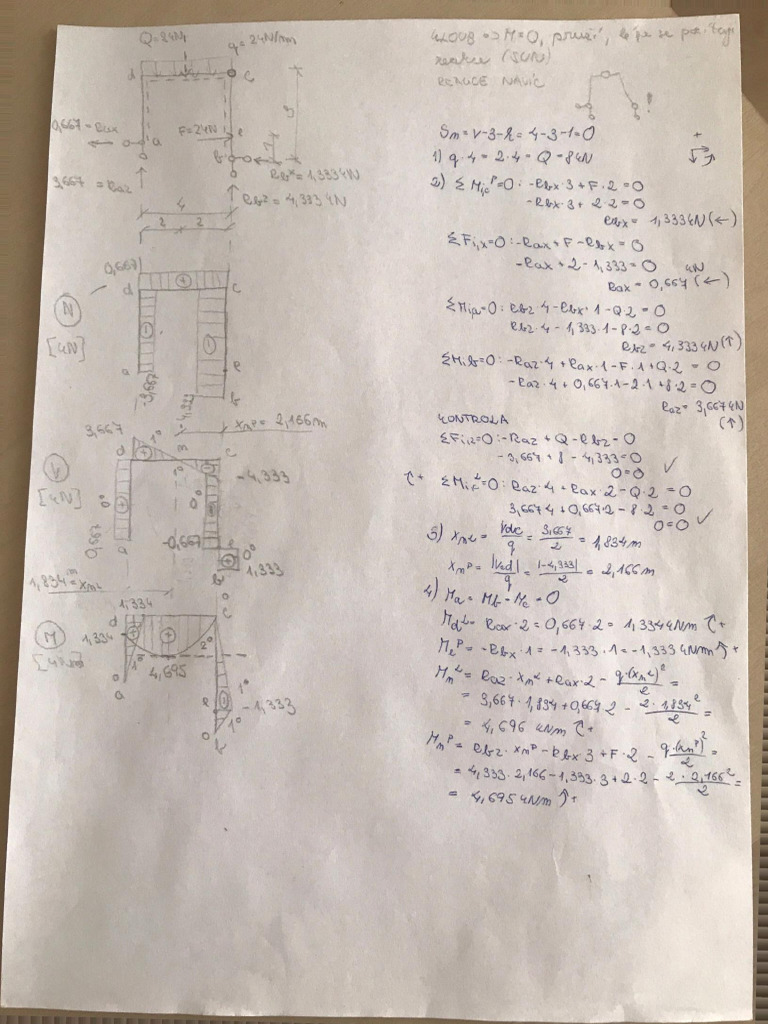 Q=24N
q=24N/m
d
c
3
0,667=Rax
a
F=24N
e
1
b
Rbx=1,3334N
3,667=Raz
Rbz=4,3334N
4
2 2
0,667
d
c
N
[4N]
a
e
b
-3,667
-4,333
xmP=2,166m
3,667
1°
d
c
-4,333
V
[4N]
0°
0°
-0,667
e
0,667
a
0°
b
1,333
1,834m=xmL
1,334
d
c
0
1,334
M
1°
2°
4,695
a
0
e
1°
-1,333
1°
0
b
=> M=0,
reakce
REAKCE NAVÍC
!
Sm=v-3-k=4-3-1=0
+
1) q·4=2·4=Q=84N
2) ΣMicP=0: -Rbx·3+F·2=0
-Rbx·3+2·2=0
Rbx=1,3334N(←)
ΣFi,x=0: -Rax+F-Rbx=0
-Rax+2-1,333=0
Rax=0,667 4N (←)
ΣMia=0: Rbz·4-Rbx·1-Q·2=0
Rbz·4-1,333·1-8·2=0
Rbz=4,3334N(↑)
ΣMib=0: -Raz·4+Rax·1-F·1+Q·2=0
-Raz·4+0,667·1-2·1+8·2=0
Raz=3,6674N
(↑)
KONTROLA
ΣFiz=0: -Raz+Q-Rbz=0
-3,667+8-4,333=0
0=0 ✓
ΣMicL=0: Raz·4+Rax·2-Q·2=0
3,667·4+0,667·2-8·2=0
0=0 ✓
3) xmL=Vdc/q=3,667/2=1,834m
xmP=|Vcd|/q=|-4,333|/2=2,166m
4) Ma=Mb=Mc=0
MdL=Rax·2=0,667·2=1,3344Nm
MeP=-Rbx·1=-1,333·1=-1,3334Nm
MmL=Raz·xmL+Rax·2-q·(xmL)²/2=
=3,667·1,834+0,667·2-2·1,834²/2=
=4,696 4Nm
MmP=Rbz·xmP-Rbx·3+F·2-q·(xmP)²/2=
=4,333·2,166-1,333·3+2·2-2·2,166²/2=
=4,6954Nm